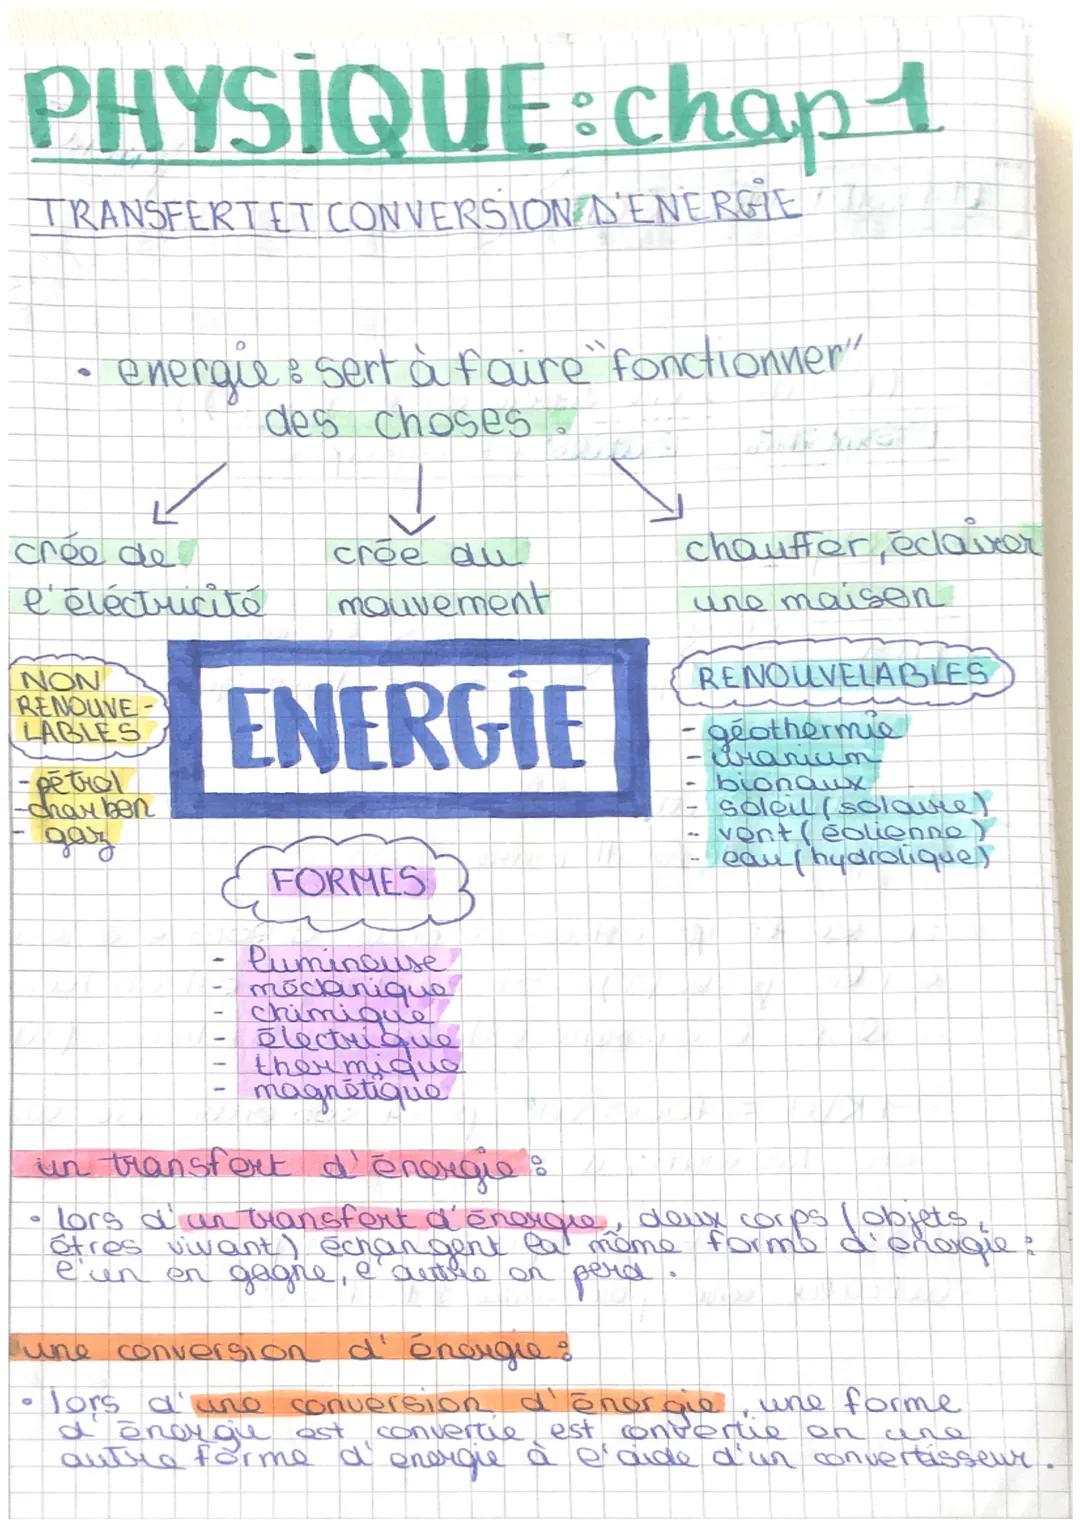 PHYSIQUE : chap 1
TRANSFERT ET CONVERSION D'ENERGIE
• energie : sert à faire "fonctionner"
des choses.
crée de
l'électricité
crée du
mouvement
chauffer, éclairer
une maison
NON
RENOUVE-
LABLES
- pétrol
- charbon
- gaz
ENERGIE
RENOUVELABLES
- géothermie
- uranium
- bionaux
- soleil (solaire)
- vent (éolienne)
- eau (hydrolique)
FORMES
- lumineuse
- mécanique
- chimique
- électrique
- thermique
- magnétique
un transfert d'énergie :
• lors d'un transfert d'énergie, deux corps (objets,
êtres vivant) échangent la même forme d'énergie :
l'un en gagne, l'autre en perd.
une conversion d'énergie :
• lors d'une conversion d'énergie, une forme
d'énergie est convertie est convertie en une
autre forme d'energie à l'aide d'un convertisseur.